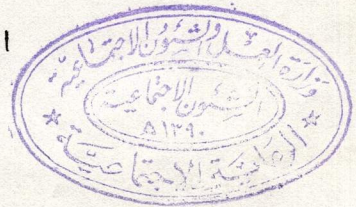 وزارة العمل والشئون الاجتماعية
الشئون الاجتماعية
١٣٩٠ هـ
الاجتماعية